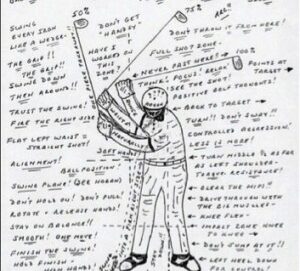 50%
75%
ARC
SWING
EVERY IRON
LIKE A WEDGE.
DON'T GET
"HANDSY"
DON'T THROW IT FROM HERE!
HAVE I
WORKED ON
THIS
ZONE
FULL SHOT ZONE
100%
THE GRIP!!
THE GRIP!!
NEVER FAST HERE!
POINTS AT
TARGET
SWING DOWN
THEN AROUND!!
THINK! FOCUS! RELAX
SEE THE SHOT!
POSITIVE GOLF THOUGHTS!
TRUST THE SWING!
BACK TO TARGET
FIRE THE RIGHT SIDE
TURN!! DON'T SWAY!!
CONTROLLED AGGRESSION!
FLAT LEFT WRIST =
STRAIGHT SHOT!
LESS IS MORE!
SOFT HANDS
ALIGNMENT!
TURN MIDDLE AS FAR
AS LEFT SHOULDER -
TORQUE = RESISTANCE!
BALL POSITION!
SWING PLANE! (SEE HOGAN)
CLEAR THE HIPS!!
DON'T HOLD ON! DON'T PULL!
DRIVE THROUGH WITH
THE BIG MUSCLES -
ROTATE + RELEASE HAND!
KNEE FLEX -
STAY ON BALANCE!!
IMPACT ZONE KNEE
SMOOTH! ONE MOVE!
DON'T JUMP AT IT!!
FINISH THE SWING!
LEFT HEEL DOWN
HOLD FINISH -
HIGH HANDS!